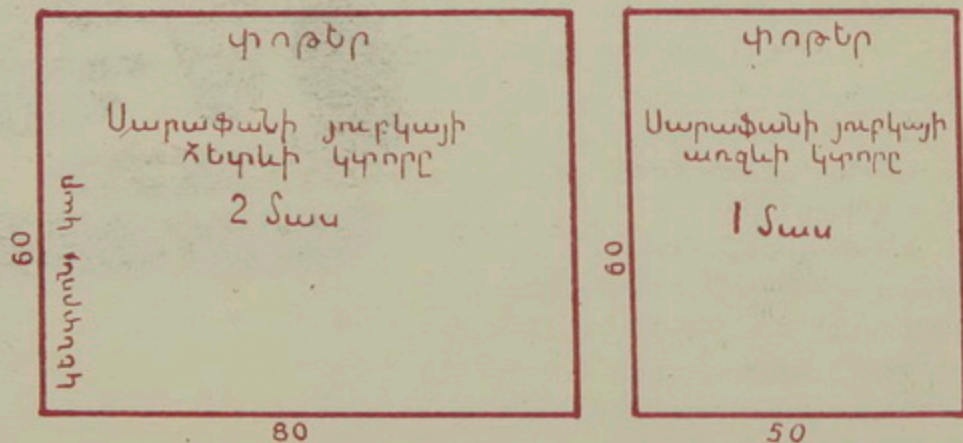 փոթեր
Սարաֆանի յուբկայի
հետևի կտորը
2 մաս
60
80
փոթեր
Սարաֆանի յուբկայի
առջևի կտորը
1 մաս
60
50